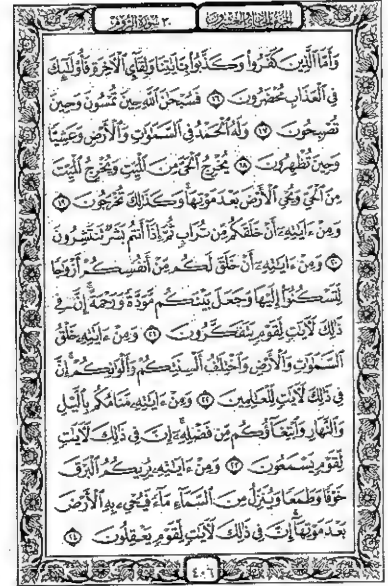 الجزء الحادي والعشرون ٣٠ سورة الروم
وَأَمَّا الَّذِينَ كَفَرُوا۟ وَكَذَّبُوا۟ بِـَٔايَـٰتِنَا وَلِقَآئِ ٱلْـَٔاخِرَةِ فَأُو۟لَـٰٓئِكَ
فِى ٱلْعَذَابِ مُحْضَرُونَ ١٦ فَسُبْحَـٰنَ ٱللَّهِ حِينَ تُمْسُونَ وَحِينَ
تُصْبِحُونَ ١٧ وَلَهُ ٱلْحَمْدُ فِى ٱلسَّمَـٰوَٰتِ وَٱلْأَرْضِ وَعَشِيًّا
وَحِينَ تُظْهِرُونَ ١٨ يُخْرِجُ ٱلْحَىَّ مِنَ ٱلْمَيِّتِ وَيُخْرِجُ ٱلْمَيِّتَ
مِنَ ٱلْحَىِّ وَيُحْىِ ٱلْأَرْضَ بَعْدَ مَوْتِهَا ۚ وَكَذَٰلِكَ تُخْرَجُونَ ١٩
وَمِنْ ءَايَـٰتِهِۦٓ أَنْ خَلَقَكُم مِّن تُرَابٍ ثُمَّ إِذَآ أَنتُم بَشَرٌ تَنتَشِرُونَ
٢٠ وَمِنْ ءَايَـٰتِهِۦٓ أَنْ خَلَقَ لَكُم مِّنْ أَنفُسِكُمْ أَزْوَٰجًا
لِّتَسْكُنُوٓا۟ إِلَيْهَا وَجَعَلَ بَيْنَكُم مَّوَدَّةً وَرَحْمَةً ۚ إِنَّ فِى
ذَٰلِكَ لَـَٔايَـٰتٍ لِّقَوْمٍ يَتَفَكَّرُونَ ٢١ وَمِنْ ءَايَـٰتِهِۦ خَلْقُ
ٱلسَّمَـٰوَٰتِ وَٱلْأَرْضِ وَٱخْتِلَـٰفُ أَلْسِنَتِكُمْ وَأَلْوَٰنِكُمْ ۚ إِنَّ
فِى ذَٰلِكَ لَـَٔايَـٰتٍ لِّلْعَـٰلِمِينَ ٢٢ وَمِنْ ءَايَـٰتِهِۦ مَنَامُكُم بِٱلَّيْلِ
وَٱلنَّهَارِ وَٱبْتِغَآؤُكُم مِّن فَضْلِهِۦٓ ۚ إِنَّ فِى ذَٰلِكَ لَـَٔايَـٰتٍ
لِّقَوْمٍ يَسْمَعُونَ ٢٣ وَمِنْ ءَايَـٰتِهِۦ يُرِيكُمُ ٱلْبَرْقَ
خَوْفًا وَطَمَعًا وَيُنَزِّلُ مِنَ ٱلسَّمَآءِ مَآءً فَيُحْىِۦ بِهِ ٱلْأَرْضَ
بَعْدَ مَوْتِهَآ ۚ إِنَّ فِى ذَٰلِكَ لَـَٔايَـٰتٍ لِّقَوْمٍ يَعْقِلُونَ ٢٤
٤٠٦